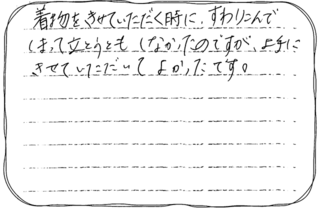 着物をきせていただく時に、すわりこんで
しまって立とうともしなかったのですが、上手に
きせていただいてよかったです。